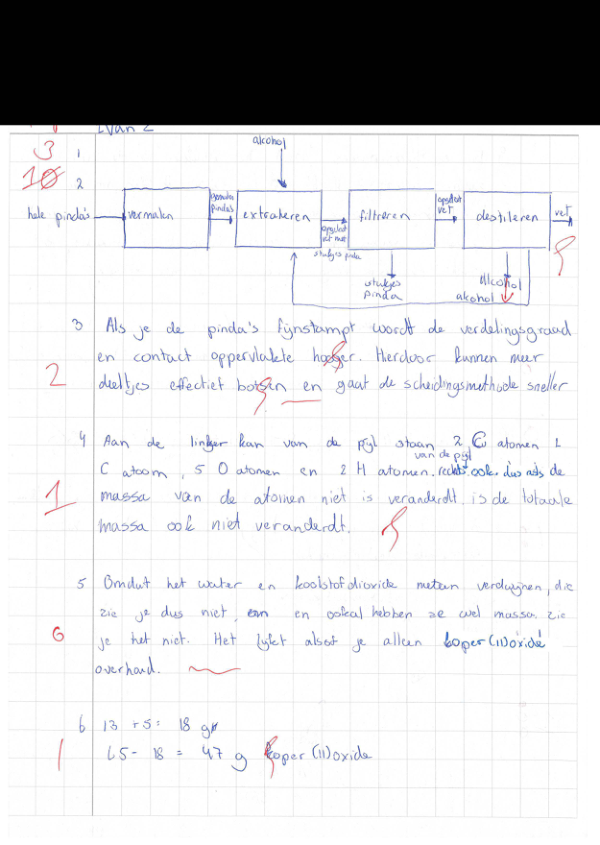 1 van 2
3 1
alcohol
10 2
hele pinda's vermalen gemalen pinda's extraheren opgelost vet met stukjes pinda filtreren opgelost vet destileren vet
stukjes pinda
alcohol
alcohol
3 Als je de pinda's fijnstampt wordt de verdelingsgraad
en contact oppervlakte hoger. Hierdoor kunnen meer
2 deeltjes effectief botsen en gaat de scheidingsmethode sneller
4 Aan de linker kan van de pijl staan 2 Cu atomen 1
C atoom, 5 O atomen en 2 H atomen. rechts van de pijl ook. dus als de
1 massa van de atomen niet is veranderdt is de totaale
massa ook niet veranderdt.
5 Omdat het water en koolstofdioxide meteen verdwijnen, die
zie je dus niet, en ookal hebben ze wel massa zie
0 je het niet. Het lijkt alsof je alleen koper(II)oxide
overhoud.
6 13 + 5 = 18 gr
1 65 - 18 = 47 g koper(II)oxide